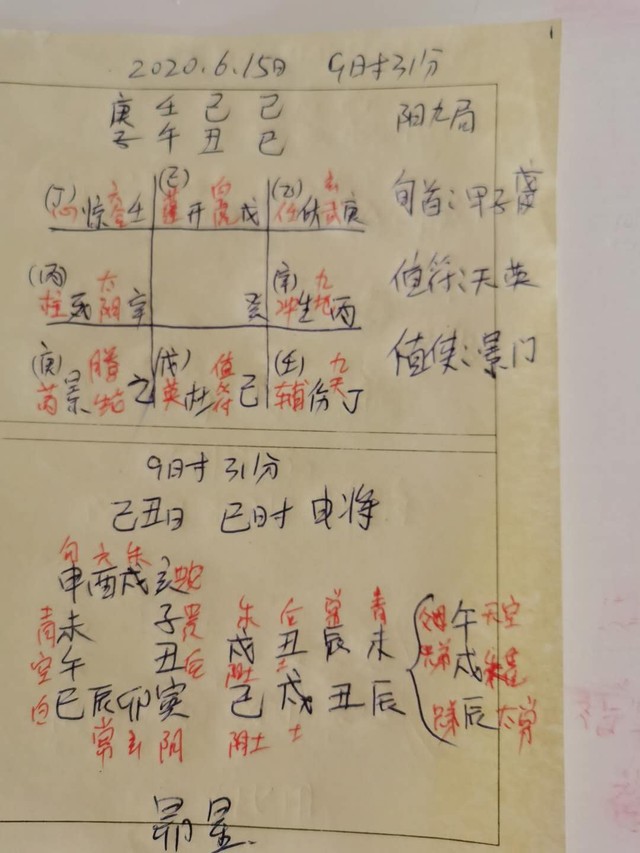 2020.6.15日 9时31分
庚 壬 己 己
子 午 丑 巳
阳九局
(丁) 心 惊 六合 壬
(己) 蓬 开 白虎 戊
(乙) 任 休 玄武 庚
旬首:甲子戊
(丙) 柱 死 太阴 辛
癸
(辛) 冲 生 九地 丙
值符:天英
(庚) 芮 景 腾蛇 乙
(戊) 英 杜 值符 己
(壬) 辅 伤 九天 丁
值使:景门
9时31分
己丑日 巳时 申将
勾 六 朱
申 酉 戌 亥 蛇
青 未 子 贵 朱 后 常 青
空 午 丑 后 戌 丑 辰 未
白 巳 辰 卯 寅 己 戌 丑 辰
常 玄 阴 阴土 土
午 天空
兄弟 戌 朱雀
兄弟 辰 太常
昴星.